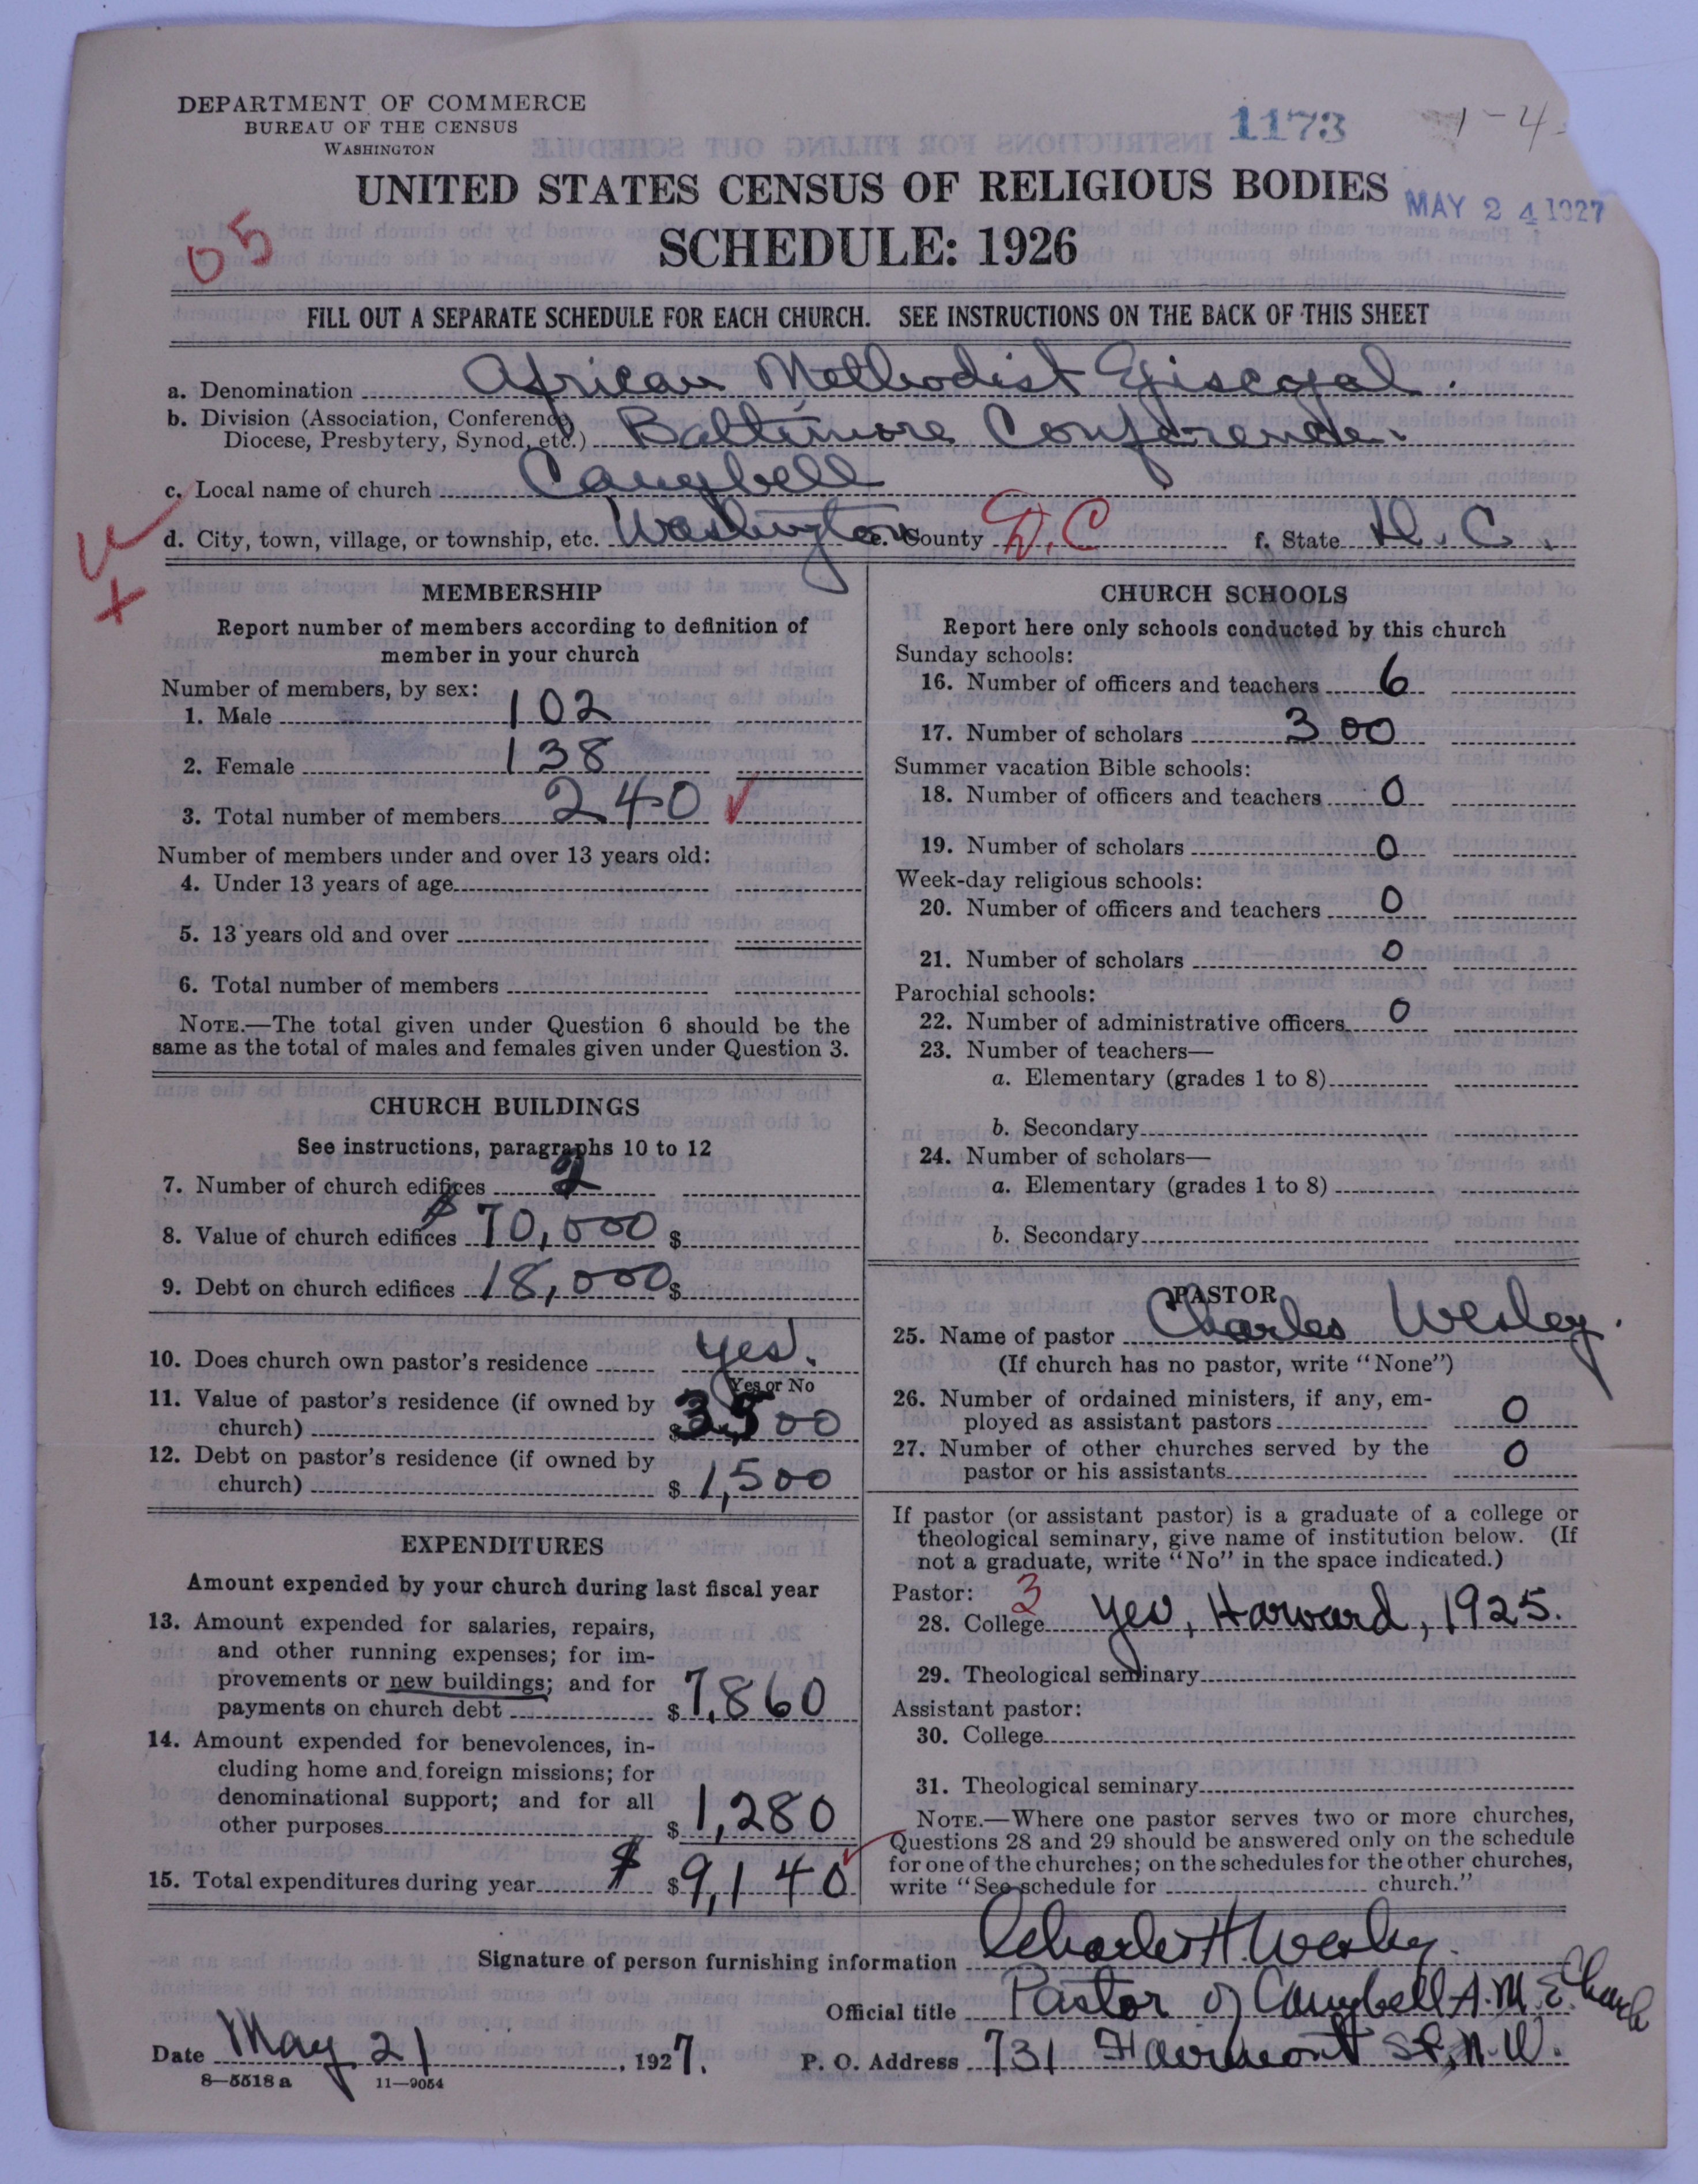 DEPARTMENT OF COMMERCE
BUREAU OF THE CENSUS
WASHINGTON
1173
1-4
UNITED STATES CENSUS OF RELIGIOUS BODIES
MAY 24 1927
SCHEDULE: 1926
05
FILL OUT A SEPARATE SCHEDULE FOR EACH CHURCH. SEE INSTRUCTIONS ON THE BACK OF THIS SHEET
a. Denomination African Methodist Episcopal.
b. Division (Association, Conference,
Diocese, Presbytery, Synod, etc.) Baltimore Conference.
c. Local name of church Campbell
d. City, town, village, or township, etc. Washington e. County D.C f. State D.C.
MEMBERSHIP
Report number of members according to definition of
member in your church
Number of members, by sex:
1. Male 102
2. Female 138
3. Total number of members 240
Number of members under and over 13 years old:
4. Under 13 years of age
5. 13 years old and over
6. Total number of members
NOTE.—The total given under Question 6 should be the
same as the total of males and females given under Question 3.
CHURCH BUILDINGS
See instructions, paragraphs 10 to 12
7. Number of church edifices 2
8. Value of church edifices $70,000 $
9. Debt on church edifices 18,000 $
10. Does church own pastor's residence yes.
Yes or No
11. Value of pastor's residence (if owned by
church) $3,500
12. Debt on pastor's residence (if owned by
church) $1,500
EXPENDITURES
Amount expended by your church during last fiscal year
13. Amount expended for salaries, repairs,
and other running expenses; for im-
provements or new buildings; and for
payments on church debt $7,860
14. Amount expended for benevolences, in-
cluding home and foreign missions; for
denominational support; and for all
other purposes $1,280
15. Total expenditures during year $ $9,140
CHURCH SCHOOLS
Report here only schools conducted by this church
Sunday schools:
16. Number of officers and teachers 6
17. Number of scholars 300
Summer vacation Bible schools:
18. Number of officers and teachers 0
19. Number of scholars 0
Week-day religious schools:
20. Number of officers and teachers 0
21. Number of scholars 0
Parochial schools:
22. Number of administrative officers 0
23. Number of teachers—
a. Elementary (grades 1 to 8)
b. Secondary
24. Number of scholars—
a. Elementary (grades 1 to 8)
b. Secondary
PASTOR
25. Name of pastor Charles Wesley.
(If church has no pastor, write "None")
26. Number of ordained ministers, if any, em-
ployed as assistant pastors 0
27. Number of other churches served by the
pastor or his assistants 0
If pastor (or assistant pastor) is a graduate of a college or
theological seminary, give name of institution below. (If
not a graduate, write "No" in the space indicated.)
Pastor: 3
28. College yes, Harvard, 1925.
29. Theological seminary
Assistant pastor:
30. College
31. Theological seminary
NOTE.—Where one pastor serves two or more churches,
Questions 28 and 29 should be answered only on the schedule
for one of the churches; on the schedules for the other churches,
write "See schedule for church."
Signature of person furnishing information Charles H. Wesley.
Official title Pastor of Campbell A.M.E. Church
Date May 21, 1927. P. O. Address 731 Fairmont St, N.W.
8—5518 a 11—9054